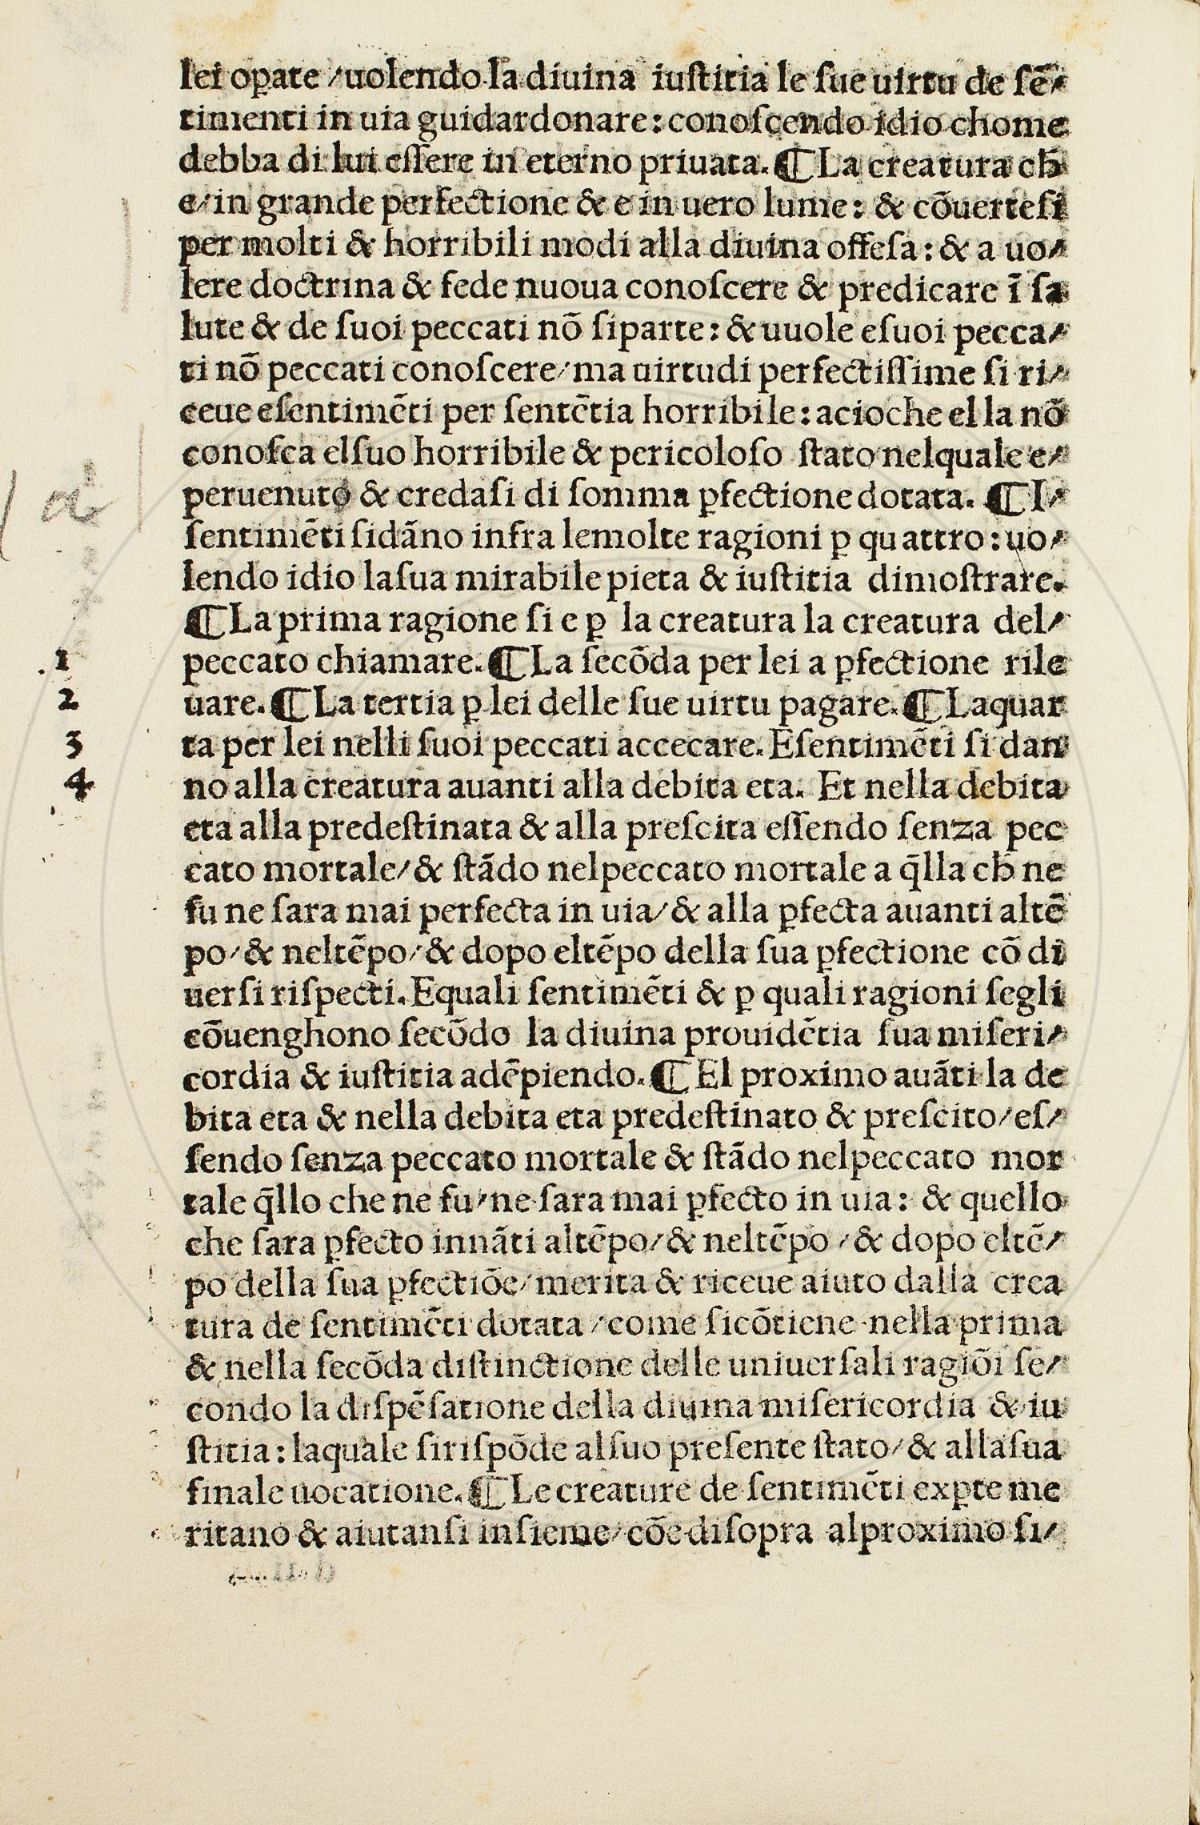 lei opate /uolendo la diuina iustitia le sue uirtu de sē/
timenti in uia guidardonare: conoscendo idio chome
debba di lui essere in eterno priuata. ¶ La creatura ch̄
e/in grande perfectione & e in uero lume: & cōuertesi
per molti & horribili modi alla diuina offesa: & a uo/
lere doctrina & fede nuoua conoscere & predicare ī sa
lute & de suoi peccati nō siparte: & uuole esuoi pecca/
ti nō peccati conoscere/ma uirtudi perfectissime si ri/
ceue esentimēti per sentētia horribile: acioche el la nō
conosca elsuo horribile & pericoloso stato nelquale e/
peruenuto & credasi di somma ꝑfectione dotata. ¶ I/
sentimēti sidāno infra lemolte ragioni ꝑ quattro: uo/
lendo idio lasua mirabile pieta & iustitia dimostrare.
¶ La prima ragione si e ꝑ la creatura la creatura del/
1 peccato chiamare. ¶ La secōda per lei a ꝑfectione rile
2 uare. ¶ La tertia ꝑ lei delle sue uirtu pagare. ¶ Laquar
3 ta per lei nelli suoi peccati accecare. Esentimēti si dan
4 no alla creatura auanti alla debita eta. Et nella debita
eta alla predestinata & alla prescita essendo senza pec
cato mortale/& stādo nelpeccato mortale a q̄lla ch̄ ne
fu ne sara mai perfecta in uia/& alla ꝑfecta auanti altē
po/& neltēpo/& dopo eltēpo della sua ꝑfectione cō di
uersi rispecti. Equali sentimēti & ꝑ quali ragioni segli
cōuenghono secōdo la diuina prouidētia sua miseri/
cordia & iustitia adēpiendo. ¶ El proximo auāti la de
bita eta & nella debita eta predestinato & prescito/es/
sendo senza peccato mortale & stādo nelpeccato mor
tale q̄llo che ne fu/ne sara mai ꝑfecto in uia: & quello
che sara ꝑfecto innāti altēpo/& neltēpo/& dopo eltē/
po della sua ꝑfectiōe/merita & riceue aiuto dalla crea
tura de sentimēti dotata/come sicōtiene nella prima
& nella secōda distinctione delle uniuersali ragiōi se/
condo la dispēsatione della diuina misericordia & iu
stitia: laquale sirispōde alsuo presente stato/& allasua
finale uocatione. ¶ Le creature de sentimēti exꝑte me
ritano & aiutansi insieme/cōe disopra alproximo si/